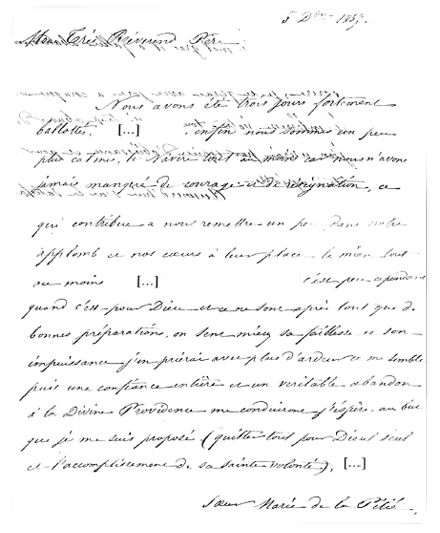 5 Dbre 1857.
Mon Très Révérend Père
Nous avons été trois jours fortement
ballottés, [...] enfin nous sommes un peu
plus calmes, le Navire tout au moins car nous n'avons
jamais manqué de courage et de résignation, ce
qui contribue a nous remettre un peu dans notre
applomb et nos cœurs à leur place le mien tout
au moins [...] c'est peu cependant
quand c'est pour Dieu et ce ne sont après tout que de
bonnes préparations, on sent mieux sa faiblesse et son
impuissance j'en prierai avec plus d'ardeur ce me semble
puis une confiance entière et un veritable abandon
à la Divine Providence me conduiront j'espère au but
que je me suis proposé (quitter tout pour Dieu seul
et l'accomplissement de sa sainte volonté), [...]
Sœur Marie de la Pitié.